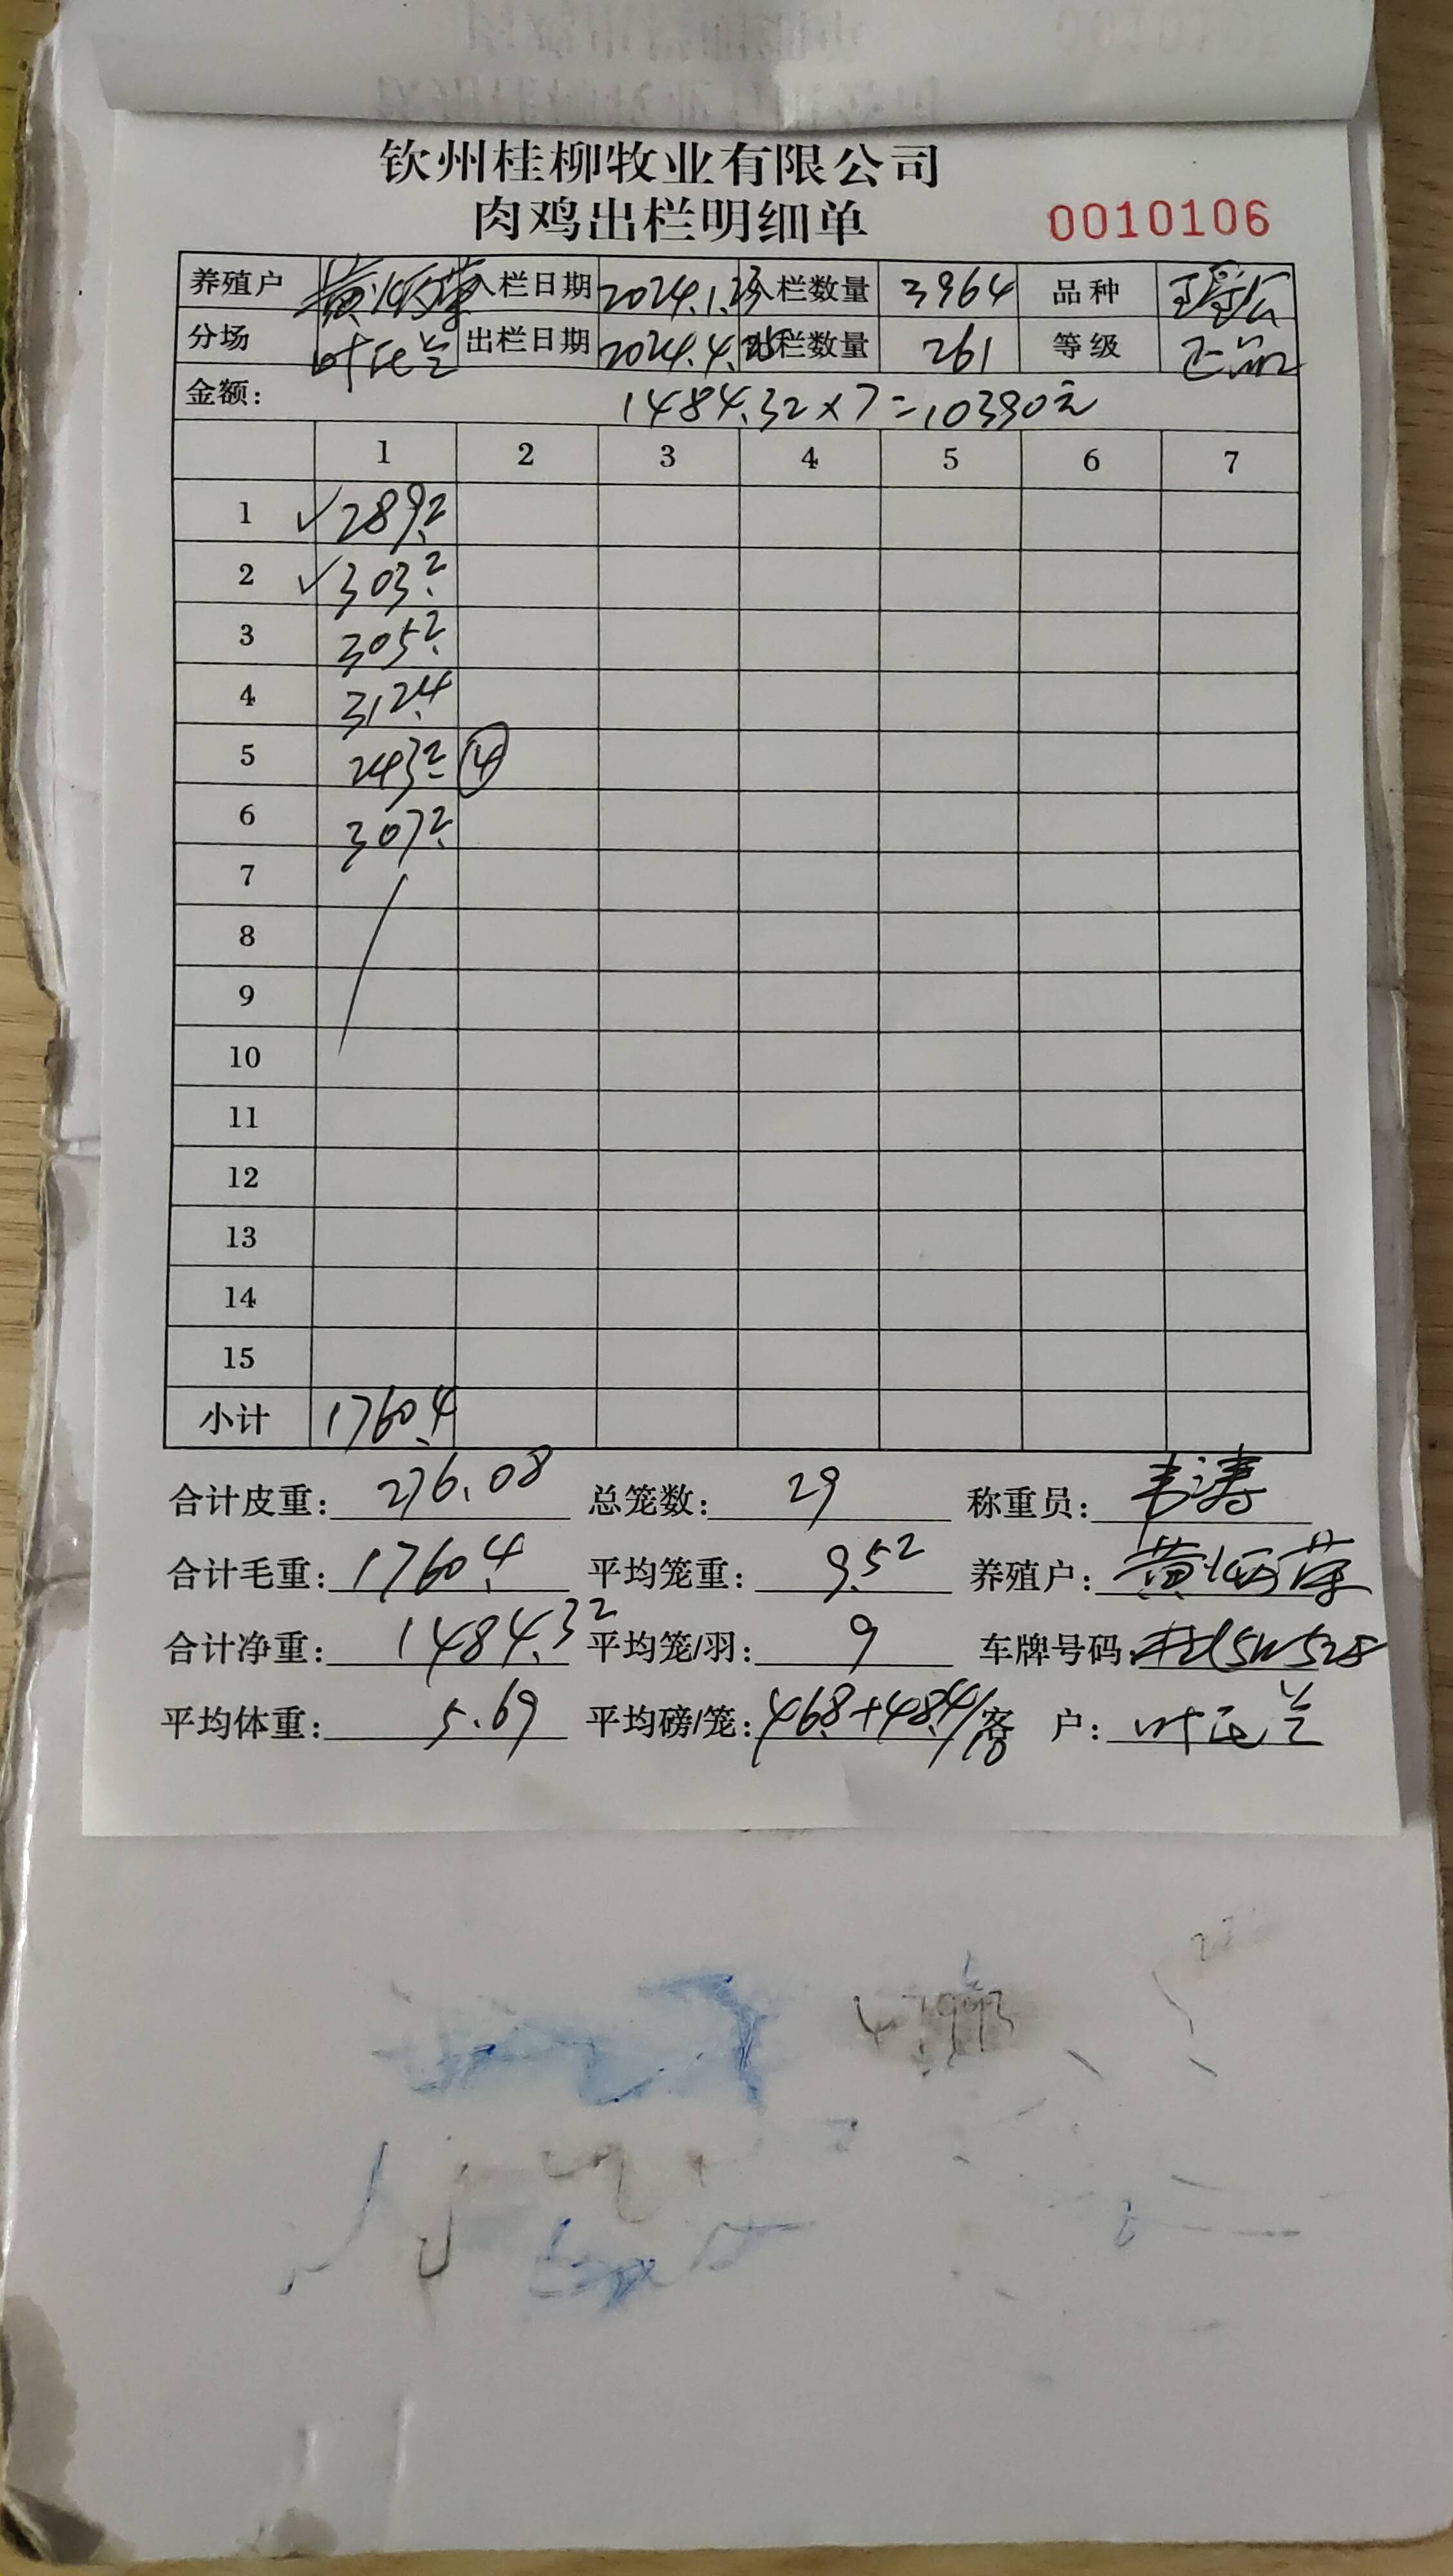 钦州桂柳牧业有限公司
肉鸡出栏明细单 0010106
养殖户 黄炳荣 入栏日期 2024.1.23 入栏数量 3964 品种
分场 叶氏兰 出栏日期 2024.4.25 出栏数量 261 等级 正品
金额: 1484.32×7=10390元
1 2 3 4 5 6 7
1 ✓289.2
2 ✓303.2
3 305.2
4 312.4
5 243.2 ④
6 307.2
7
8
9
10
11
12
13
14
15
小计 1760.4
合计皮重: 276.08 总笼数: 29 称重员: 韦涛
合计毛重: 1760.4 平均笼重: 9.52 养殖户: 黄炳荣
合计净重: 1484.32 平均笼/羽: 9 车牌号码:
平均体重: 5.69 平均磅/笼: 46.8+48.4/10 客 户: 叶氏兰